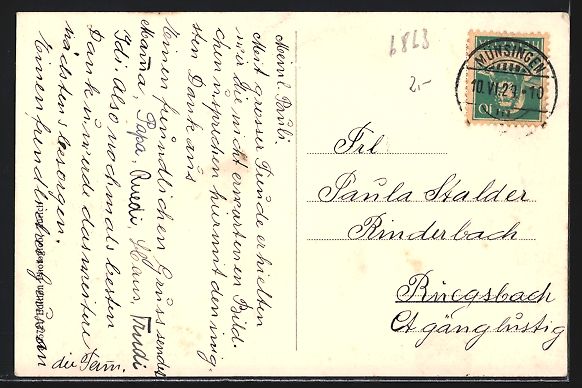 Meinl. Pauli.
Mit grosser Freude erhielten
wir die nicht erwarteten Bild-
chen u sprechen hiermit den inig-
sten Dank aus
Einen freundlichen Gruss sendet
Mama, Papa, Ruedi, Hans, Trudi
Idi. also nochmals besten
Dank u. werde das weitere
nächstens besorgen.
Einen freundlichen Gruss an
die Fam.
6863
2.-
MÜNSINGEN
10.VI.2 -10
10
Frl
Paula Stalder
Rinderbach
Rüegsbach
Ct gänglustig